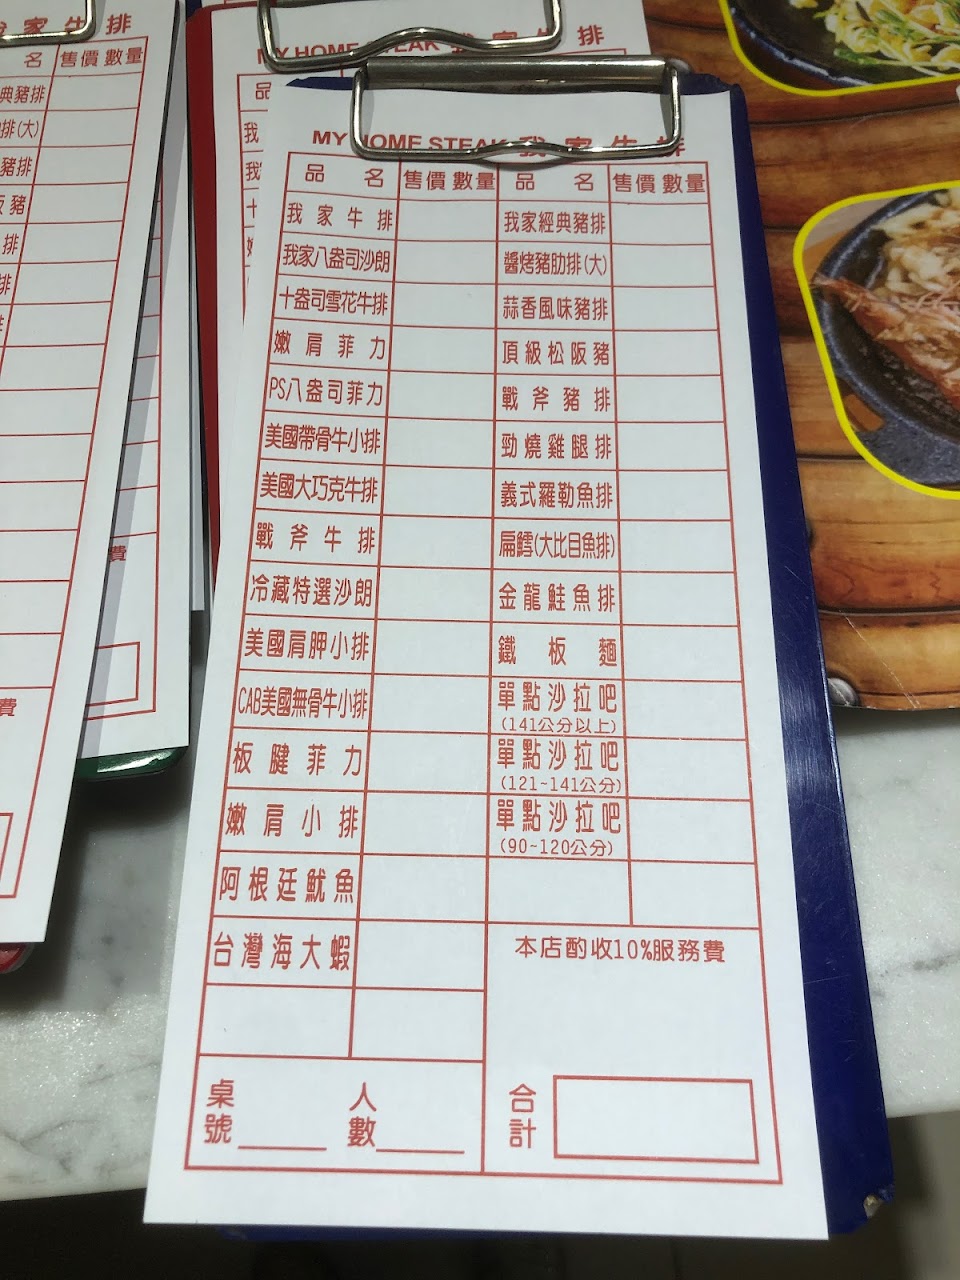 MY HOME STEAK 我家牛排
品名 售價 數量 品名 售價 數量
我家牛排 我家經典豬排
我家八盎司沙朗 醬烤豬肋排(大)
十盎司雪花牛排 蒜香風味豬排
嫩肩菲力 頂級松阪豬
PS八盎司菲力 戰斧豬排
美國帶骨牛小排 勁燒雞腿排
美國大巧克牛排 義式羅勒魚排
戰斧牛排 扁鱈(大比目魚排)
冷藏特選沙朗 金龍鮭魚排
美國肩胛小排 鐵板麵
CAB美國無骨牛小排 單點沙拉吧
(141公分以上)
板腱菲力 單點沙拉吧
(121~141公分)
嫩肩小排 單點沙拉吧
(90~120公分)
阿根廷魷魚
台灣海大蝦 本店酌收10%服務費
桌號 人數 合計
MY HOME STEAK 我家牛排
品
我
我
十
費
我家牛排
名 售價 數量
典豬排
排(大)
豬排
阪豬
排
排
費